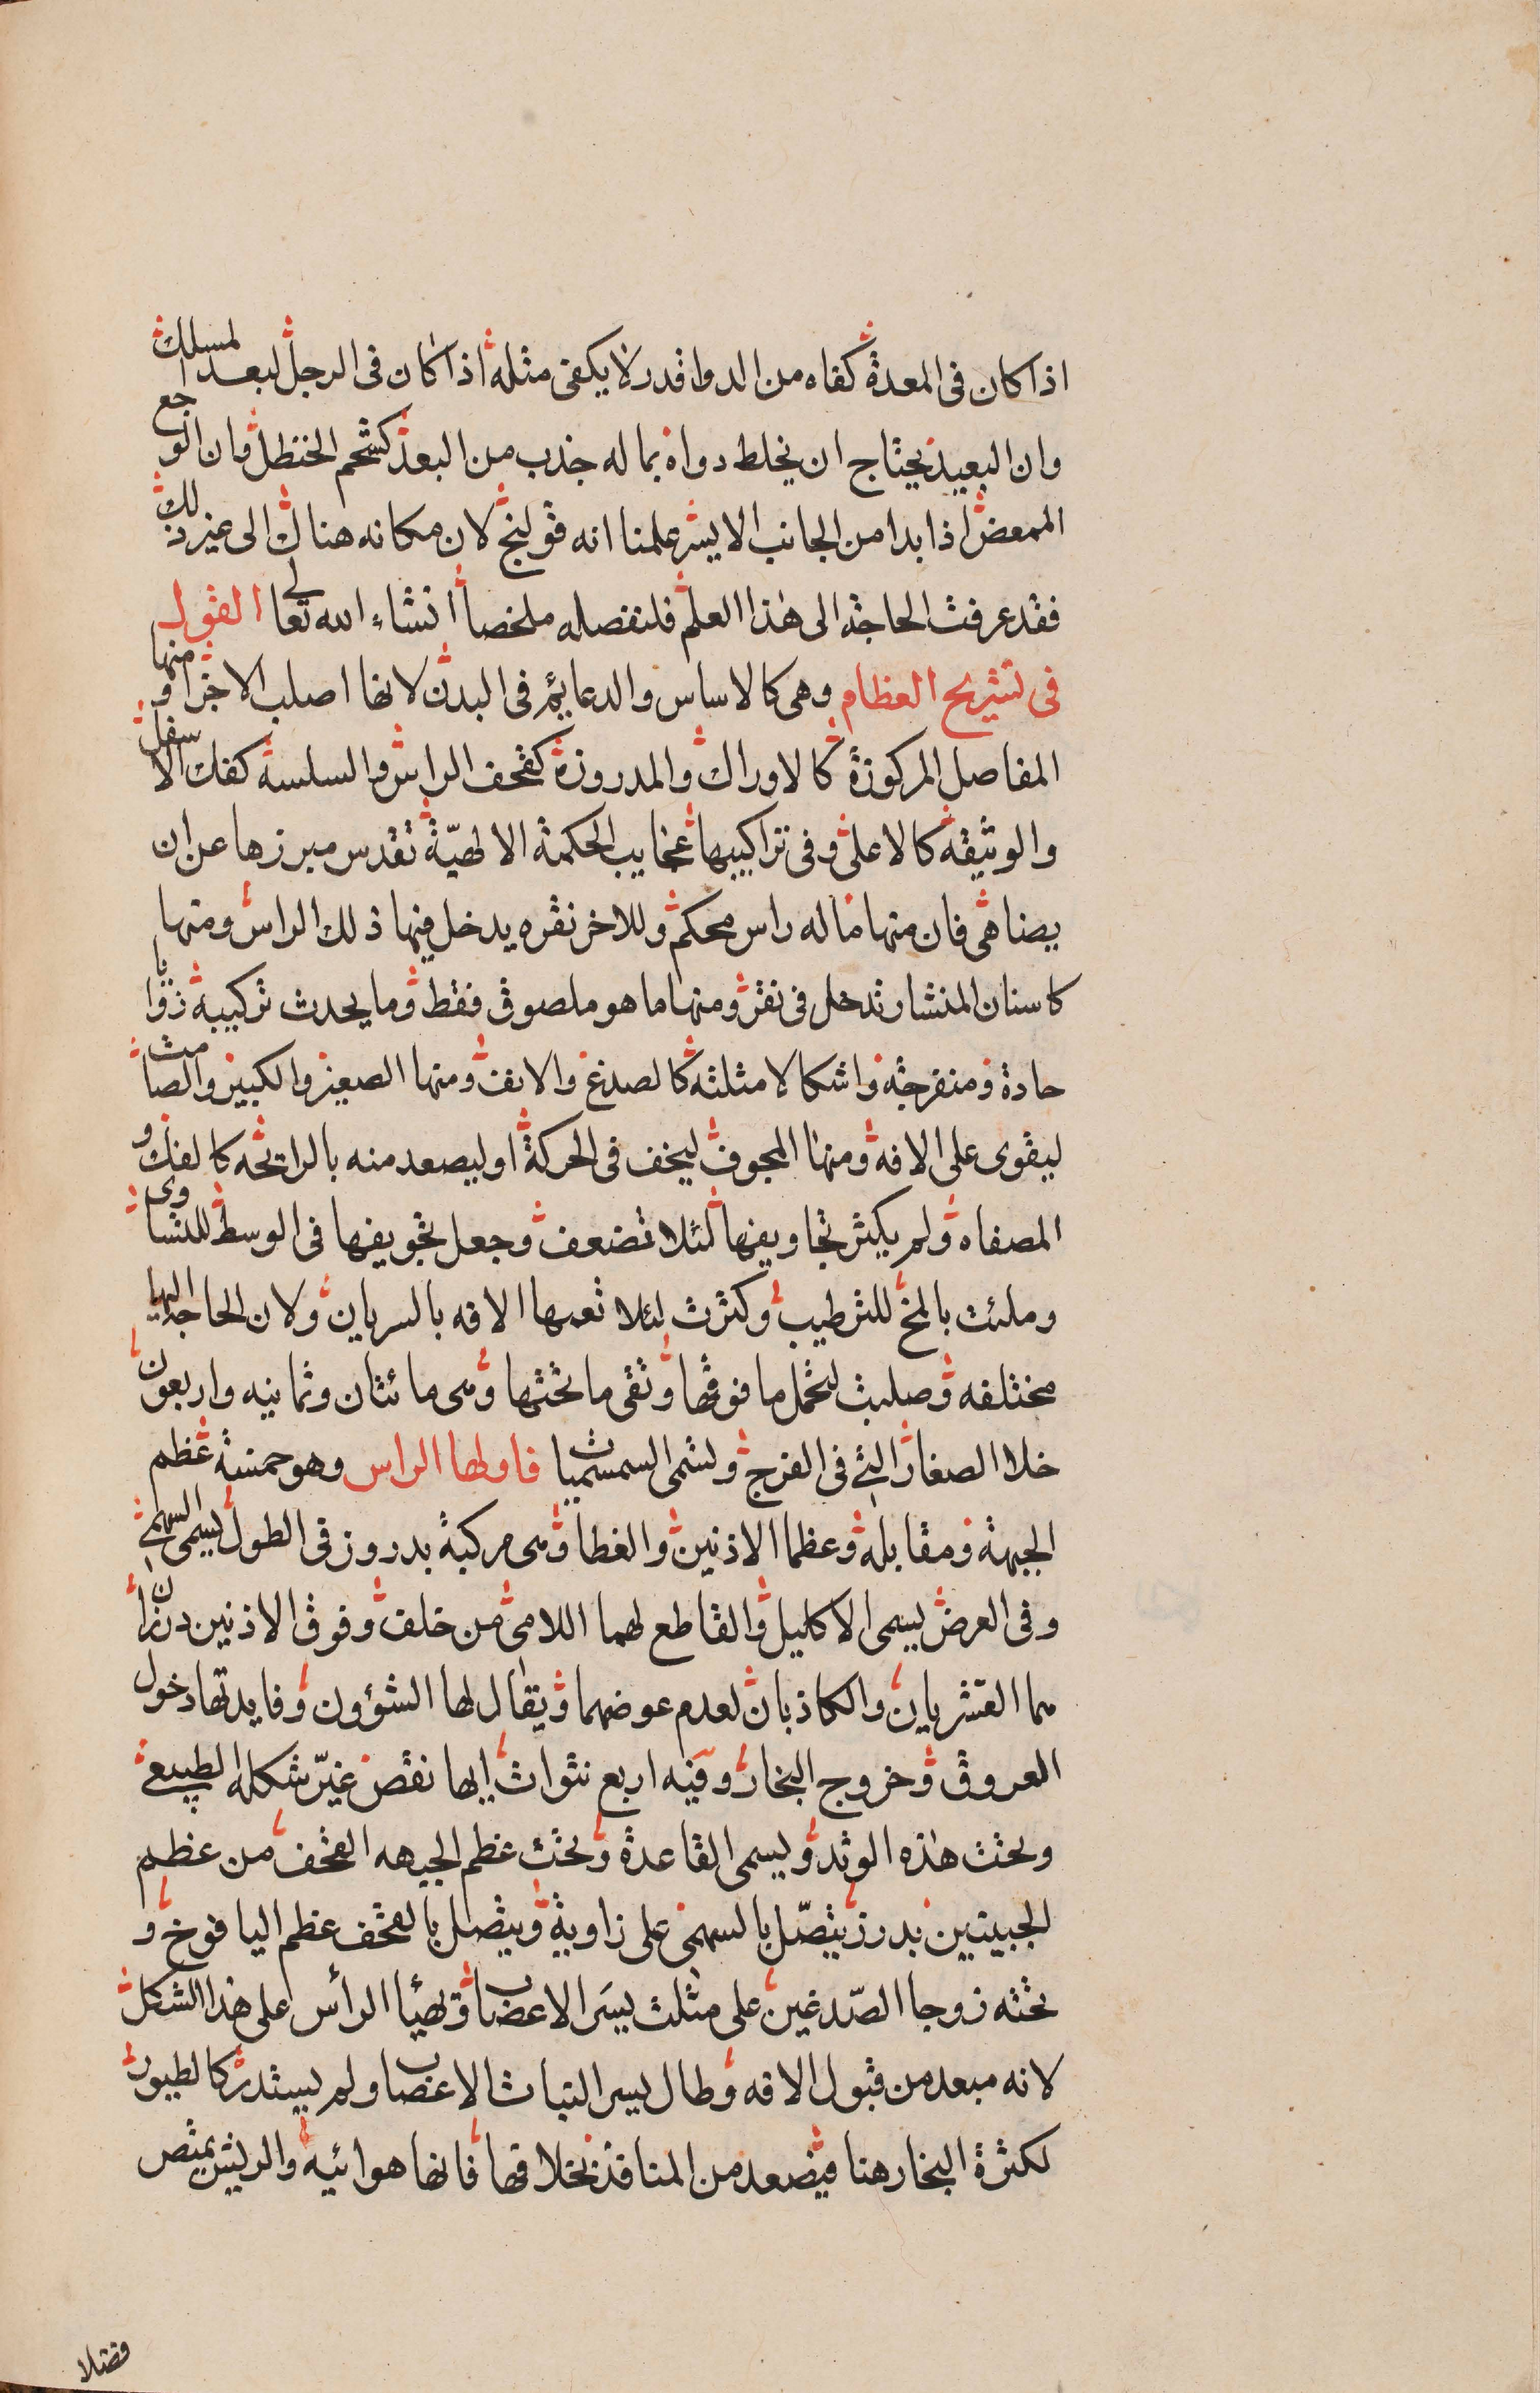 اذا كان فى المعدة كفاه من الدوا قدر لا يكفى مثله اذا كان فى الرجل لبعد المسلك
وان البعيد يحتاج ان يخلط دواه بما له جذب من البعد كشحم الحنظل وان الوجع
الممعض اذا بدا من الجانب الايسر علمنا انه قولنج لان مكانه هناك الى غير ذلك
فقد عرفت الحاجة الى هذا العلم فلنفصله ملخصا انشاء الله تعالى القول
فى تشريح العظام وهى كالاساس والدعايم فى البدن لانها اصلب الاجزا ومنها
المفاصل المركوزة كالاوراك والمدروزة كقحف الراس والسلسة كفك الاسفل
والوثيقة كالاعلى وفى تراكيبها عجايب الحكمة الالهيّة تقدس مبرزها عن ان
يضاهى فان منها ما له راس محكم وللاخر نقره يدخل فيها ذلك الراس ومنها
كاسنان المنشار تدخل فى نقر ومنها ما هو ملصوق فقط وما يحدث تركيبه زوايا
حادة ومنفرجة واشكالا مثلثه كالصدغ والانف ومنها الصغير والكبير والصامت
ليقوى على الافه ومنها المجوف ليخف فى الحركة او ليصعد منه بالرايحه كالفك و
المصفاه ولم يكثر تجاويفها لئلا تضعف وجعل تجويفها فى الوسط للتساوى
وملئت بالمخ للترطيب وكثرت لئلا تعمها الافه بالسريان ولان الحاجة اليها
مختلفه وصلبت لتحمل ما فوقها وتقى ما تحتها وهى مائتان وثمانيه واربعون
خلا الصغار التى فى الفرج وتسمى السمسميات فاولها الراس وهو خمسة عظم
الجبهة ومقابله وعظما الاذنين والغطا وهى مركبة بدروز فى الطول يسمى السهمى
وفى العرض يسمى الاكليل والقاطع لهما اللامى من خلف وفوق الاذنين درزان
هما القشريان والكاذبان لعدم عوضهما ويقال لها الشؤون وفايدتها دخول
العروق وخروج البخار وفيه اربع نتوات ايها نقص غيّر شكله الطبيعى
وتحت هذه الوتد ويسمى القاعدة وتحت عظم الجبهه القحف من عظم
الجبينين بدرز يتصّل بالسهمى على زاوية ويتصل بالقحف عظم اليافوخ و
تحته زوجا الصّدغين على مثلث يسَر الاعصاب وتهيئا الرأس على هذا الشكل
لانه مبعد من قبول الافه وطال ليسر التبات الاعصاب ولم يستدر كالطيور
لكثرة البخار هنا فيصعد من المنافذ بخلافها فانها هوائيه والريش يمتص
فضلا